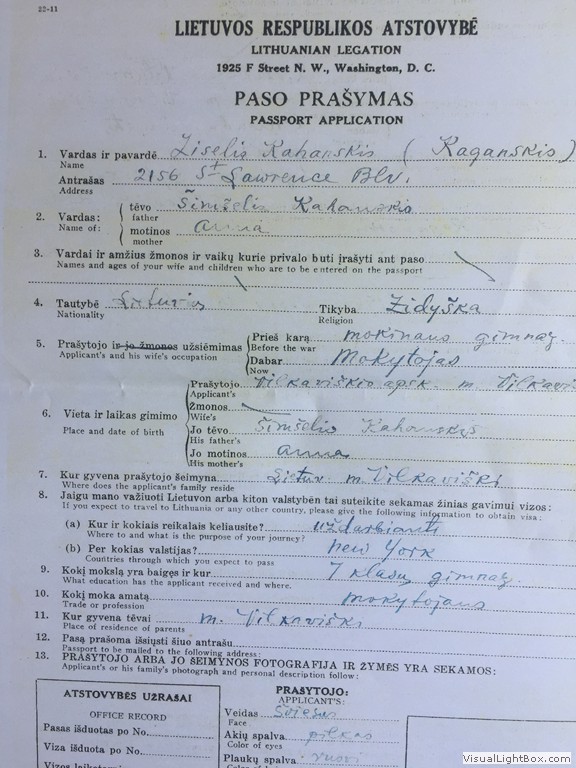 22-11
LIETUVOS RESPUBLIKOS ATSTOVYBĖ
LITHUANIAN LEGATION
1925 F Street N. W., Washington, D. C.
PASO PRAŠYMAS
PASSPORT APPLICATION
1. Vardas ir pavardė Ziselis Kahanskis (Kaganskis)
Name
Antrašas 2156 St Lawrence Blv.
Address
2. Vardas: tėvo Šimšelis Kahanskis
Name of: father
motinos Anna
mother
3. Vardai ir amžius žmonos ir vaikų kurie privalo buti įrašyti ant paso
Names and ages of your wife and children who are to be entered on the passport
4. Tautybė Lietuvis Tikyba Židyška
Nationality Religion
5. Prašytojo ir jo žmonos užsiėmimas Prieš karą mokinaus gimnaz.
Applicant's and his wife's occupation Before the war
Dabar Mokytojas
Now
Prašytojo Vilkaviškio apsk. m. Vilkavi
Applicant's
6. Vieta ir laikas gimimo Žmonos
Place and date of birth Wife's
Jo tėvo Šimšelis Kahanskis
His father's
Jo motinos Anna
His mother's
7. Kur gyvena prašytojo šeimyna Lietuv. m. Vilkaviški
Where does the applicant's family reside
8. Jaigu mano važiuoti Lietuvon arba kiton valstybėn tai suteikite sekamas žinias gavimui vizos:
If you expect to travel to Lithuania or any other country, please give the following information to obtain visa:
(a) Kur ir kokiais reikalais keliausite? uždarbianti
Where to and what is the purpose of your journey?
(b) Per kokias valstijas? New York
Countries through which you expect to pass
9. Kokį mokslą yra baigęs ir kur 7 klasų gimnaz.
What education has the applicant received and where.
10. Kokį moka amatą Mokytojaus
Trade or profession
11. Kur gyvena tėvai m. Vilkaviški
Place of residence of parents
12. Pasą prašoma išsiųsti šiuo antrašu
Passport to be mailed to the following address:
13. PRAŠYTOJO ARBA JO ŠEIMYNOS FOTOGRAFIJA IR ŽYMĖS YRA SEKAMOS:
Applicant's or his family's photograph and personal description follow:
ATSTOVYBĖS UŽRAŠAI
OFFICE RECORD
Pasas išduotas po No.
Viza išduota po No.
PRAŠYTOJO:
APPLICANT'S:
Veidas Šviesus
Face
Akių spalva pilkas
Color of eyes
Plaukų spalva rusvi
VisualLightBox.com